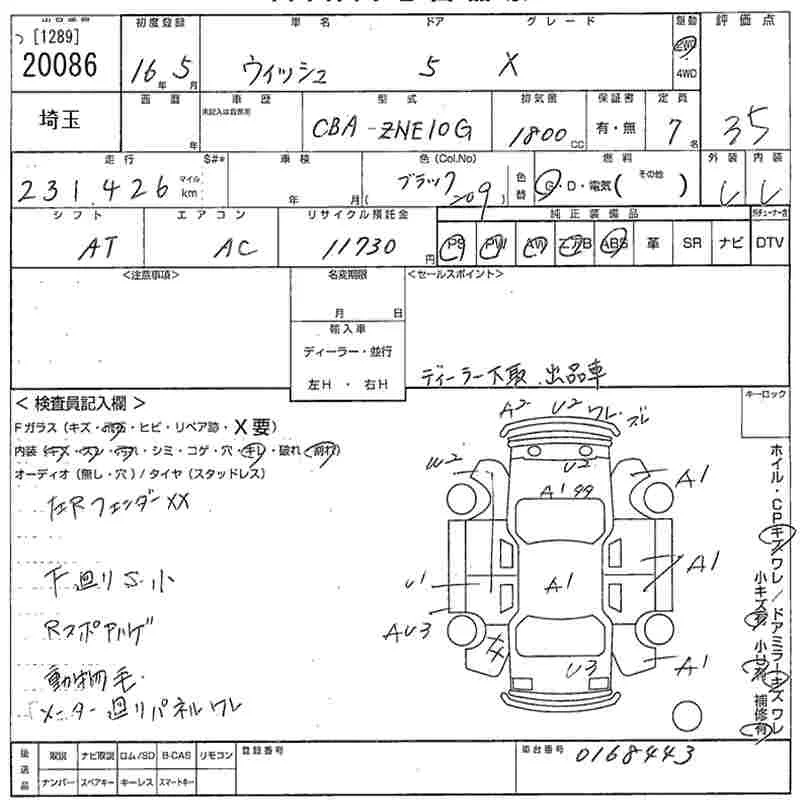 [1289]
20086
初度登録
16年 5月
車名
ウィッシュ
ドア
5
グレード
X
駆動
2WD
4WD
評価点
3.5
埼玉
西暦
年
車歴
未記入は自家用
型式
CBA-ZNE10G
排気量
1800 CC
保証書
有・無
定員
7名
走行
231,426
マイル
km
S#*
車検
年 月
色 (Col.No)
ブラック
(209)
色替
燃料
G・D・電気(その他 )
外装
内装
シフト
AT
エアコン
AC
リサイクル預託金
11730円
純正装備品
PS PW AW エアB ABS 革 SR ナビ DTV
<注意事項>
名変期限
月 日
輸入車
ディーラー・並行
左H ・ 右H
<セールスポイント>
ディーラー下取 出品車
<検査員記入欄>
Fガラス (キズ・飛石・ヒビ・リペア跡・X要)
内装 (キズ・スレ・汚れ・シミ・コゲ・穴・キレ・破れ・
オーディオ (無し・穴) / タイヤ (スタッドレス)
左Rフェンダー XX
下廻りS.小
Rスポアルゲ
動物毛.
メーター廻りパネルワレ
A2 U2 ワレ・ズレ
W2
U2
A1 99
A1
U1
A1
A1
AU3
XX
U3
A1
キーロック
ホイル・CPキズワレ / ドアミラーキズワレ
後送品
取説 ナビ取説 ロム/SD B-CAS リモコン
ナンバー スペアキー キーレス スマートキー
登録番号
車台番号
0168443